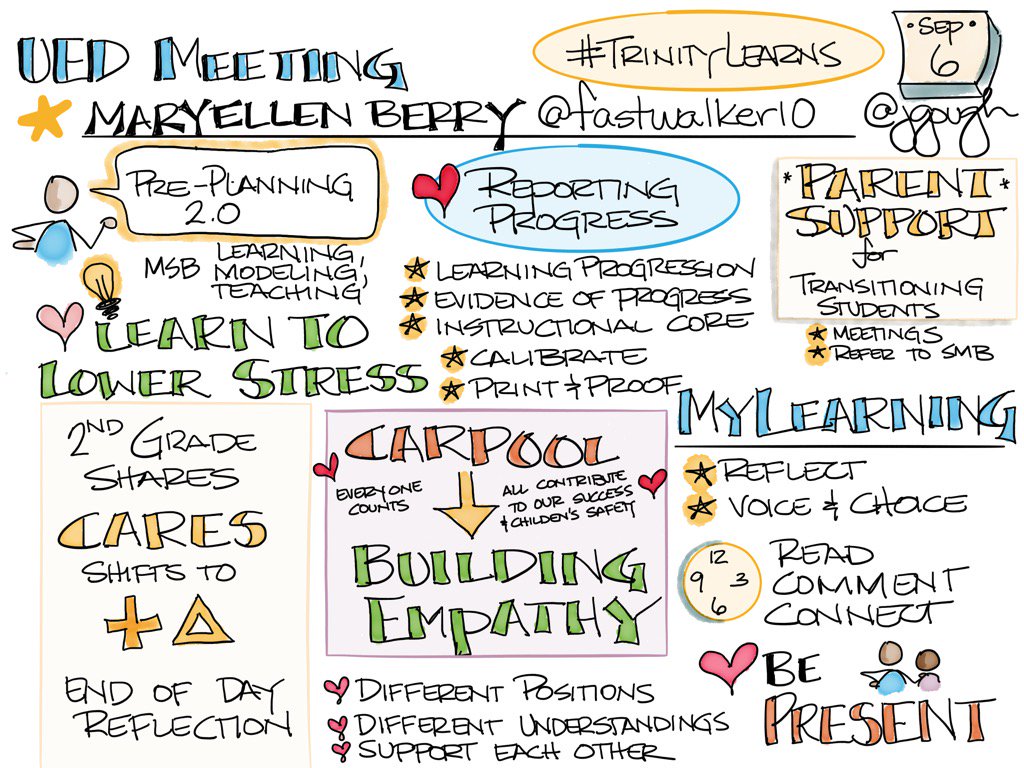 UED MEETING
#TRINITYLEARNS
SEP
6
MARYELLEN BERRY @fastwalker10
@jgough
PRE-PLANNING
2.0
MSB LEARNING,
MODELING,
TEACHING
LEARN TO
LOWER STRESS
REPORTING
PROGRESS
LEARNING PROGRESSION
EVIDENCE OF PROGRESS
INSTRUCTIONAL CORE
CALIBRATE
PRINT & PROOF
*PARENT*
SUPPORT
for
TRANSITIONING
STUDENTS
MEETINGS
REFER TO SMB
2ND GRADE
SHARES
CARES
SHIFTS TO
+ Δ
END OF DAY
REFLECTION
CARPOOL
EVERYONE
COUNTS
ALL CONTRIBUTE
TO OUR SUCCESS
& CHILDEN'S SAFETY
BUILDING
EMPATHY
DIFFERENT POSITIONS
DIFFERENT UNDERSTANDINGS
SUPPORT EACH OTHER
MYLEARNING
REFLECT
VOICE & CHOICE
12
9 3
6
READ
COMMENT
CONNECT
BE
PRESENT